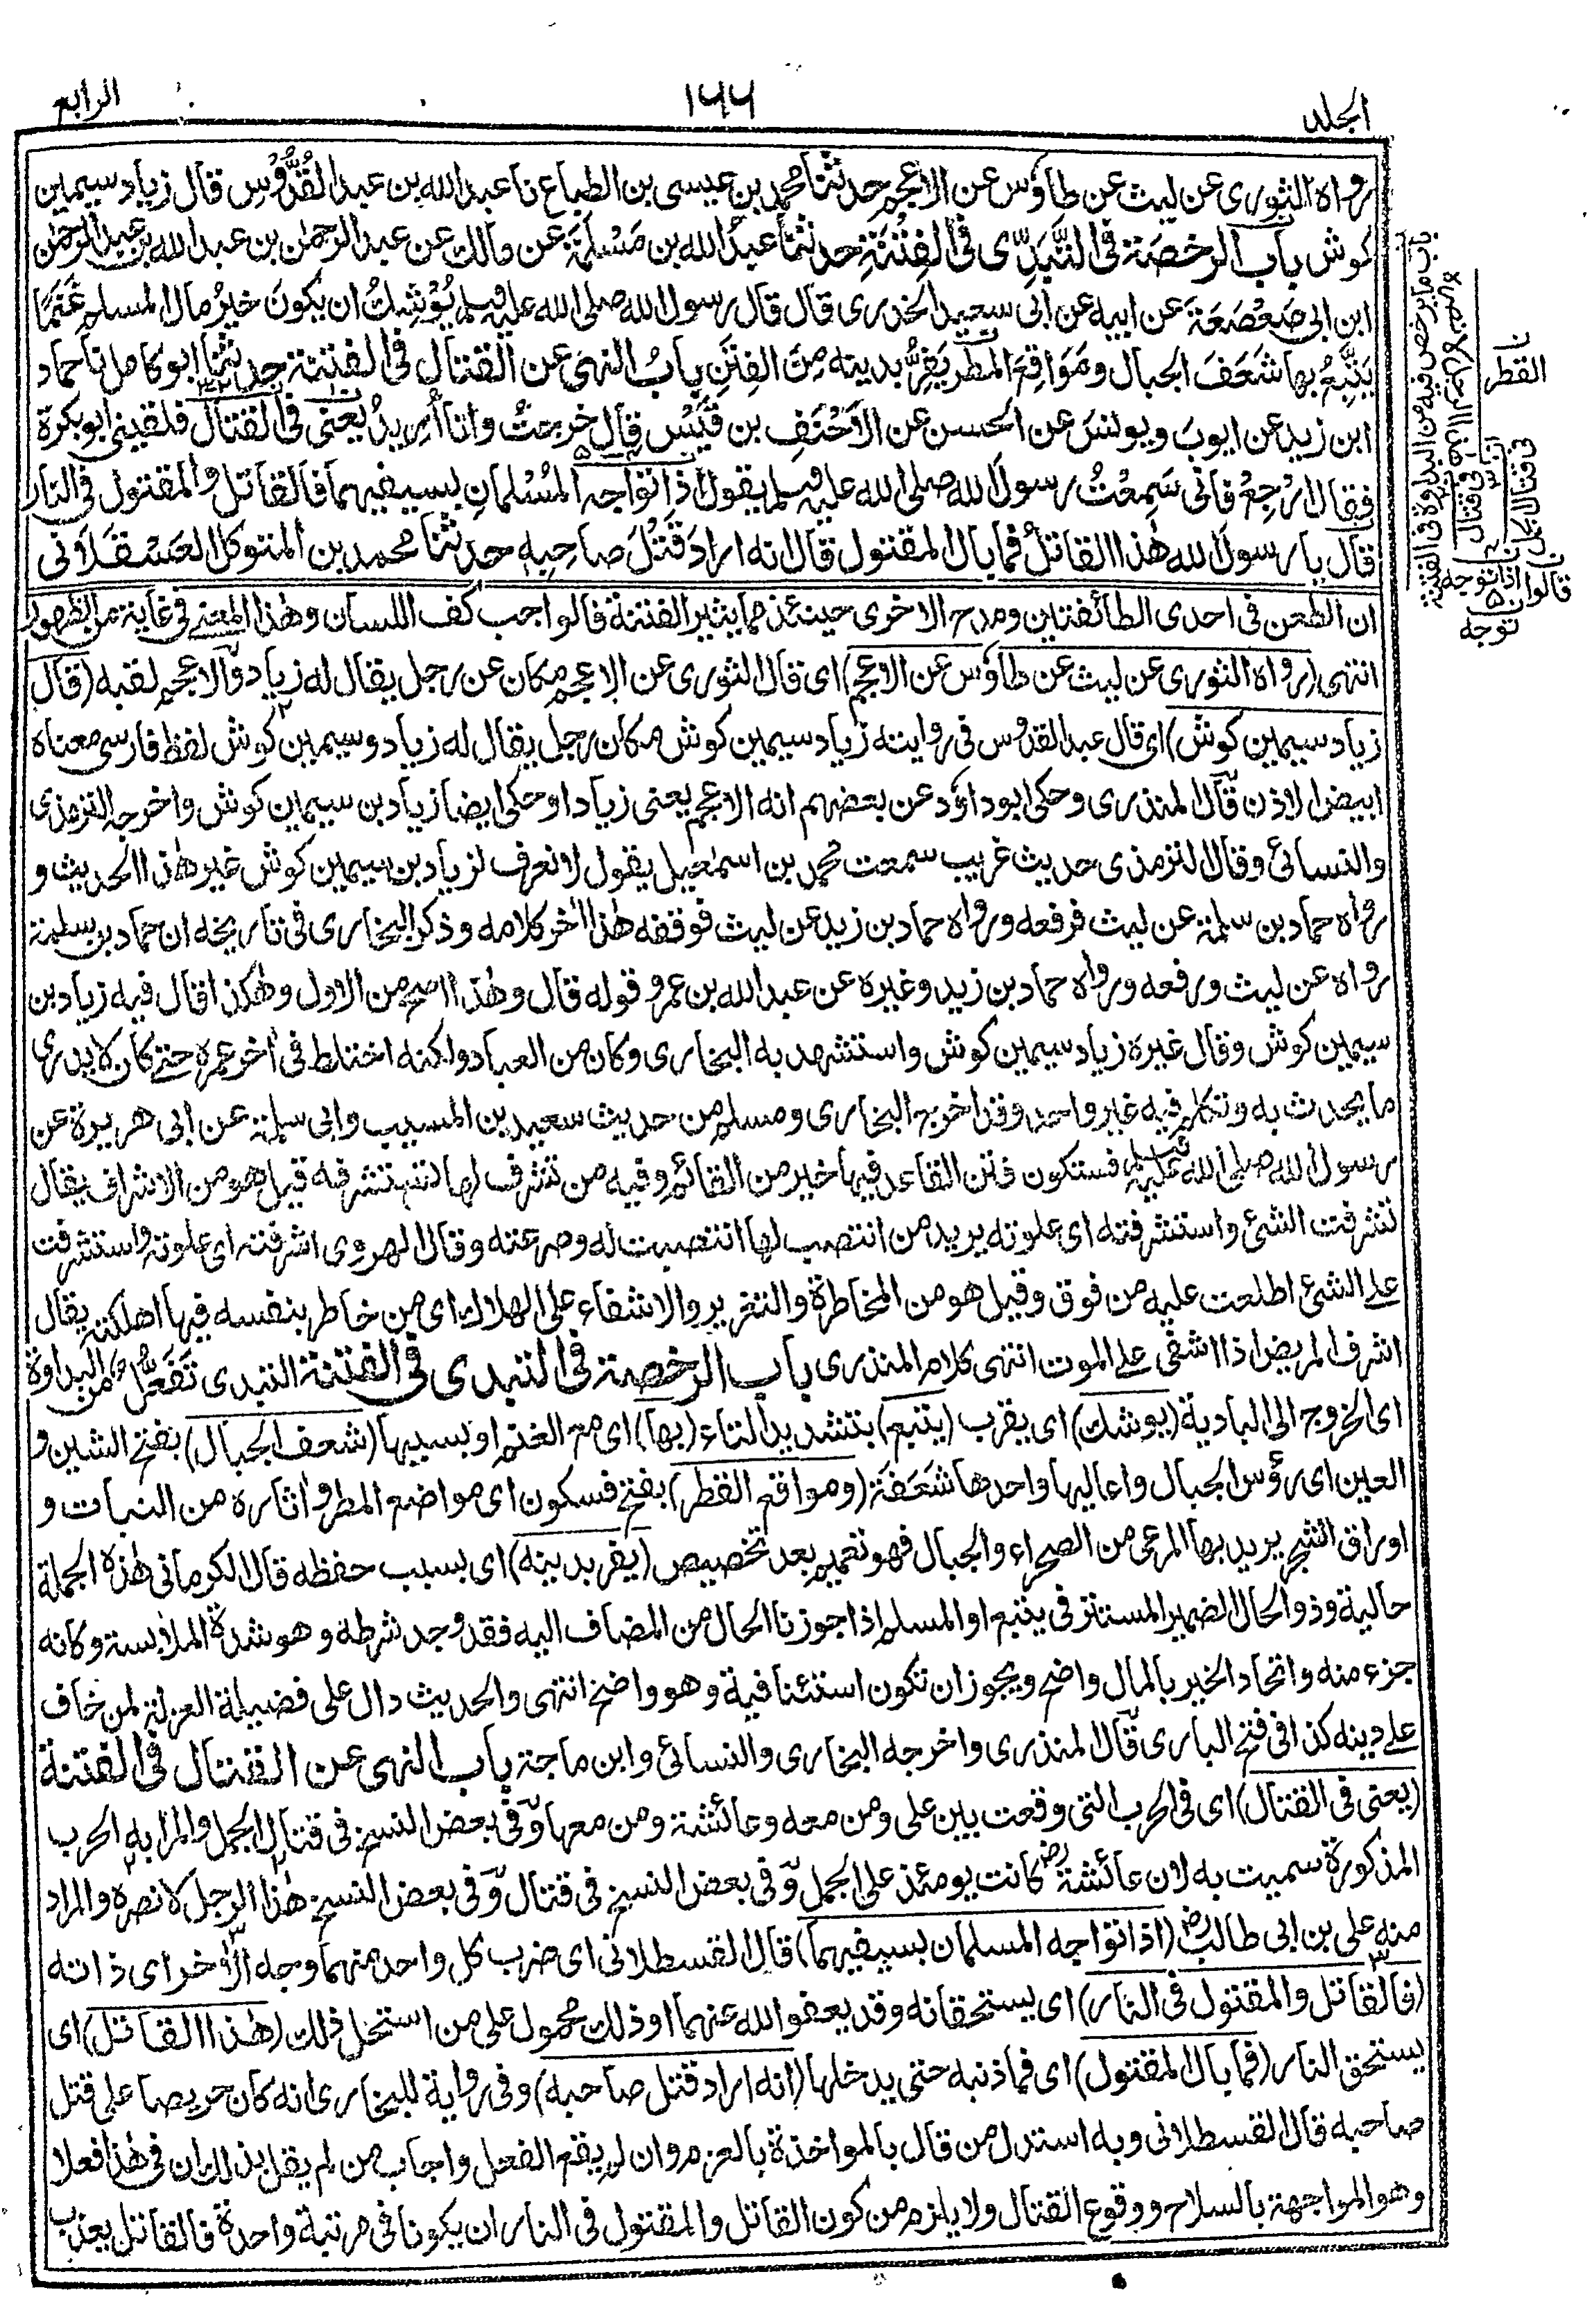 الجلد
١٦٦
الرابع
رواه الثورى عن ليث عن طاؤس عن الاعجم حدثنا محمد بن عيسى بن الطباع نا عبد الله بن عبد القُدُّوْسِ قال زياد سيمين
كوش باب الرخصة فى التَّبَدِّى فى الفِتْنَةِ حدثنا عبدُ الله بن مَسْلَمَةَ عن مالك عن عبد الرحمٰن بن عبد الله بن عبد الرحمٰن
ابن ابى صَعْصَعَةَ عن ابيه عن ابى سعيد الخدرى قال قال رسول الله صلى الله عليه وسلم يُوْشِكُ ان يكونَ خيرُ مال المسلم غَنَمًا
يَتَّبِعُ بها شَعَفَ الجبال ومَوَاقِعَ المطر يَفِرُّ بدينه مِنَ الفِتَنِ بابُ النهى عن القتال فى الفتنة حدثنا ابو كامل نا حماد
ابن زيد عن ايوبَ ويونسَ عن الحسن عن الاَحْنَفِ بن قَيْسٍ قال خرجتُ وانا أُرِيدُ يعنى فى القتال فلقينى ابو بكرة
فقال ارْجِعْ فانى سَمِعْتُ رسولَ الله صلى الله عليه وسلم يقول اذا تواجه المُسْلمانِ بسيفيهما فالقاتل والمقتول فى النار
قال يا رسولَ الله هٰذا القاتلُ فما بال المقتول قال انه اراد قَتْلَ صاحِبِهِ حدثنا محمد بن المتوكل العَسْقَلَانى
ان الطعن فى احدى الطائفتين ومدح الاخرى حينئذ مما يثير الفتنة فالواجب كف اللسان وهٰذا المعنى فى غاية من الظهور
انتهى (رواه الثورى عن ليث عن طاؤس عن الاعجم) اى قال الثورى عن الاعجم مكان عن رجل يقال له زياد والاعجم لقبه (قال
زياد سيمين كوش) اى قال عبد القدوس فى روايته زياد سيمين كوش مكان رجل يقال له زياد وسيمين كوش لفظ فارسى معناه
ابيض الاذن قال المنذرى وحكى ابو داؤد عن بعضهم انه الاعجم يعنى زيادا وحكى ايضا زياد بن سيمين كوش واخرجه الترمذى
والنسائى وقال الترمذى حديث غريب سمعت محمد بن اسمٰعيل يقول لا نعرف لزياد بن سيمين كوش غير هٰذا الحديث و
رواه حماد بن سلمة عن ليث فرفعه ورواه حماد بن زيد عن ليث فوقفه هٰذا اٰخر كلامه وذكر البخارى فى تاريخه ان حماد بن سلمة
رواه عن ليث ورفعه ورواه حماد بن زيد وغيره عن عبد الله بن عمرو قوله قال وهٰذا اصح من الاول وهٰكذا قال فيه زياد بن
سيمين كوش وقال غيره زياد سيمين كوش واستشهد به البخارى وكان من العباد ولكنه اختلط فى اٰخر عمره حتى كان لا يدرى
ما يحدث به وتكلم فيه غير واحد وقد اخرج البخارى ومسلم من حديث سعيد بن المسيب وابى سلمة عن ابى هريرة عن
رسول الله صلى الله عليه وسلم فستكون فتن القاعد فيها خير من القائم وفيه من تشرف لها تستشرفه قيل هو من الاشراف يقال
تشرفت الشئ واستشرفته اى علوته يريد من انتصب لها انتصبت له وصرعته وقال الهروى اشرفته اى علوته واستشرفت
على الشئ اطلعت عليه من فوق وقيل هو من المخاطرة والتغرير والاشفاء على الهلاك اى من خاطر بنفسه فيها اهلكته يقال
اشرف المريض اذا اشفى على الموت انتهى كلام المنذرى باب الرخصة فى التبدى فى الفتنة التبدى تَفَعُّل من البداوة
اى الخروج الى البادية (يوشك) اى يقرب (يتبع) بتشديد التاء (بها) اى مع الغنم او بسببها (شعف الجبال) بفتح الشين و
العين اى رؤس الجبال واعاليها واحدها شَعَفَة (ومواقع القطر) بفتح فسكون اى مواضع المطر واٰثاره من النبات و
اوراق الشجر يريد بها المرعى من الصحراء والجبال فهو تعميم بعد تخصيص (يفر بدينه) اى بسبب حفظه قال الكرمانى هٰذه الجملة
حالية وذو الحال الضمير المستتر فى يتبع او المسلم اذا جوزنا الحال من المضاف اليه فقد وجد شرطه وهو شدة الملابسة وكانه
جزء منه واتحاد الخير بالمال واضح ويجوز ان تكون استئنافية وهو واضح انتهى والحديث دال على فضيلة العزلة لمن خاف
على دينه كذا فى فتح البارى قال المنذرى واخرجه البخارى والنسائى وابن ماجة باب النهى عن القتال فى الفتنة
(يعنى فى القتال) اى فى الحرب التى وقعت بين على ومن معه وعائشة ومن معها وفى بعض النسخ فى قتال الجمل والمراد به الحرب
المذكورة سميت به لان عائشة رض كانت يومئذ على الجمل وفى بعض النسخ فى قتال وفى بعض النسخ هٰذا الرجل لانصره والمراد
منه على بن ابى طالب رض (اذا تواجه المسلمان بسيفيهما) قال القسطلانى اى ضرب كل واحد منهما وجه الاٰخر اى ذاته
(فالقاتل والمقتول فى النار) اى يستحقانه وقد يعفو الله عنهما او ذلك محمول على من استحل ذٰلك (هٰذا القاتل) اى
يستحق النار (فما بال المقتول) اى فما ذنبه حتى يدخلها (انه اراد قتل صاحبه) وفى رواية للبخارى انه كان حريصا على قتل
صاحبه قال القسطلانى وبه استدل من قال بالمواخذة بالعزم وان لم يقع الفعل واجاب من لم يقل بذلك ان فى هٰذا فعلا
وهو المواجهة بالسلاح ووقوع القتال ولا يلزم من كون القاتل والمقتول فى النار ان يكونا فى مرتبة واحدة فالقاتل يعذب
باب ما يرخص فيه من البداوة فى الفتنة
القطر
فى قتال
فى قتال الجمل
قالوا
اذا توجه
توجه